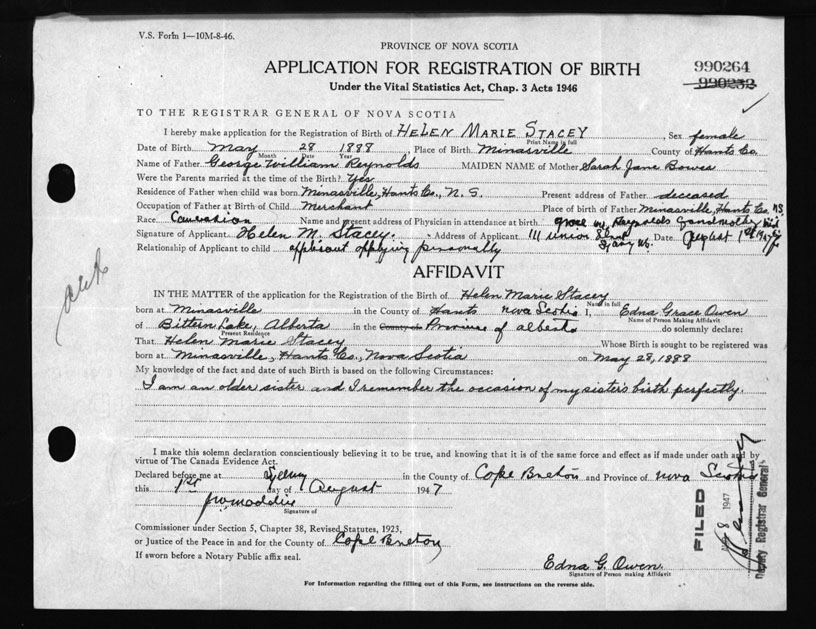 V.S. Form 1—10M-8-46.
PROVINCE OF NOVA SCOTIA
APPLICATION FOR REGISTRATION OF BIRTH
990264
990232
Under the Vital Statistics Act, Chap. 3 Acts 1946
TO THE REGISTRAR GENERAL OF NOVA SCOTIA
I hereby make application for the Registration of Birth of HELEN MARIE STACEY, Sex female
Print Name in full
Date of Birth May 28 1888, Place of Birth Minasville, County of Hants Co.
Month Date Year
Name of Father George William Reynolds MAIDEN NAME of Mother Sarah Jane Bowes
Were the Parents married at the time of Birth? Yes
Residence of Father when child was born Minasville, Hants Co., N.S. Present address of Father deceased
Occupation of Father at Birth of Child Merchant Place of birth of Father Minasville, Hants Co. N.S.
Race Caucasion Name and present address of Physician in attendance at birth Reynolds Grandmother
Signature of Applicant Helen M. Stacey. Address of Applicant 111 Union Date August 1st 1947
Relationship of Applicant to child applicant applying personally
AFFIDAVIT
IN THE MATTER of the application for the Registration of the Birth of Helen Marie Stacey
Name in full
born at Minasville in the County of Hants Nova Scotia I, Edna Grace Owen
Name of Person Making Affidavit
of Bittern Lake, Alberta in the County of Province of alberta do solemnly declare:
Present Residence
That Helen Marie Stacey Whose Birth is sought to be registered was
born at Minasville, Hants Co., Nova Scotia on May 28, 1888
My knowledge of the fact and date of such Birth is based on the following Circumstances:
I am an older sister and I remember the occasion of my sister's birth perfectly.
I make this solemn declaration conscientiously believing it to be true, and knowing that it is of the same force and effect as if made under oath and by
virtue of The Canada Evidence Act.
Declared before me at Sydney in the County of Cape Breton and Province of Nova Scotia
this 1st day of August 1947
Signature of
Commissioner under Section 5, Chapter 38, Revised Statutes, 1923,
or Justice of the Peace in and for the County of Cape Breton
If sworn before a Notary Public affix seal.
Edna G. Owen.
Signature of Person making Affidavit
For Information regarding the filling out of this Form, see instructions on the reverse side.
FILED
8 1947
Deputy Registrar General